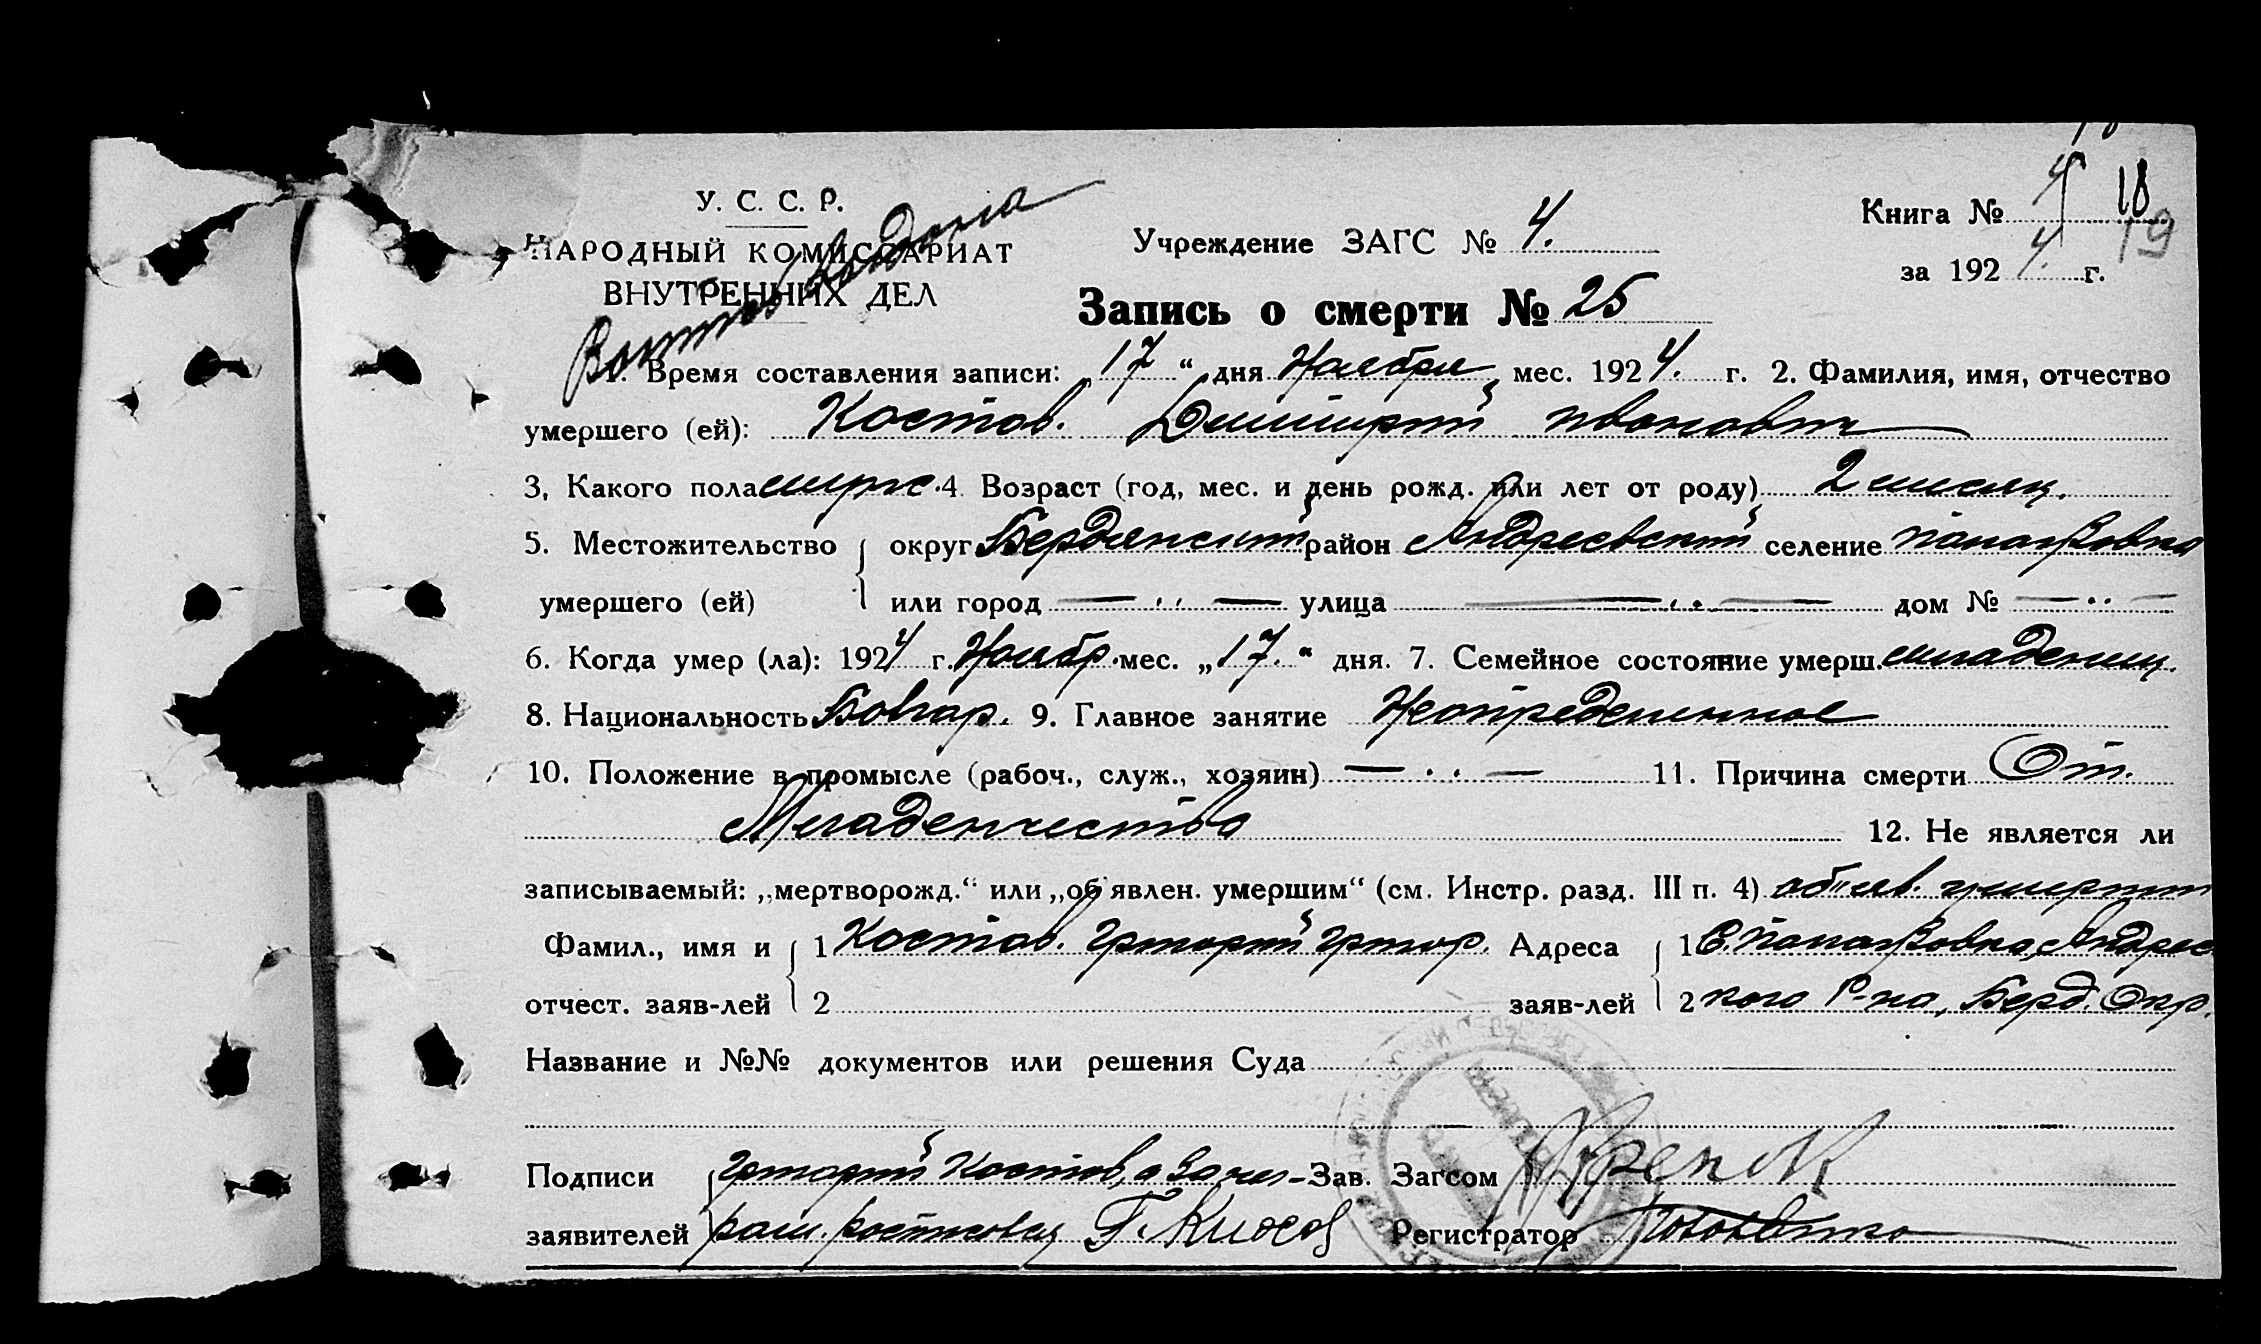 У. С. С. Р.
НАРОДНЫЙ КОМИССАРИАТ
ВНУТРЕННИХ ДЕЛ
Учреждение ЗАГС № 4.
Книга № 4 18
19
за 1924. г.
Запись о смерти № 25
1. Время составления записи: „17“ дня Ноября мес. 1924. г. 2. Фамилия, имя, отчество
умершего (ей): Костов. Димитрий Иванович
3, Какого пола муж. 4 Возраст (год, мес. и день рожд. или лет от роду) 2 месяц.
5. Местожительство округ Бердянский район Андреевский селение
умершего (ей) или город — ·· — улица — ·· — дом № — ·· —
6. Когда умер (ла): 1924 г. Ноябр. мес. „17.“ дня. 7. Семейное состояние умерш. младенец.
8. Национальность Болгар. 9. Главное занятие Неопределенное
10. Положение в промысле (рабоч., служ., хозяин) — ·· — 11. Причина смерти От.
Младенчества 12. Не является ли
записываемый: „мертворожд.“ или „об'явлен. умершим“ (см. Инстр. разд. III п. 4) об'яв. умершим
Фамил., имя и 1 Костов. Григорий Григор. Адреса 1 С. Андреев
отчест. заяв-лей 2 заяв-лей 2 кого Р-на, Берд. Окр.
Название и №№ документов или решения Суда
Подписи Григорий Костов, а за него Зав. Загсом
заявителей Г. Киосов Регистратор